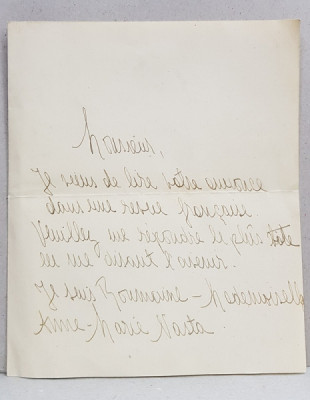 Monsieur,
Je viens de lire votre annonce
dans une revue française.
Veuillez me répondre le plus tôt
en me disant l'avenir.
Je suis Roumaine – Mademoiselle
Anne-Marie Nasta.